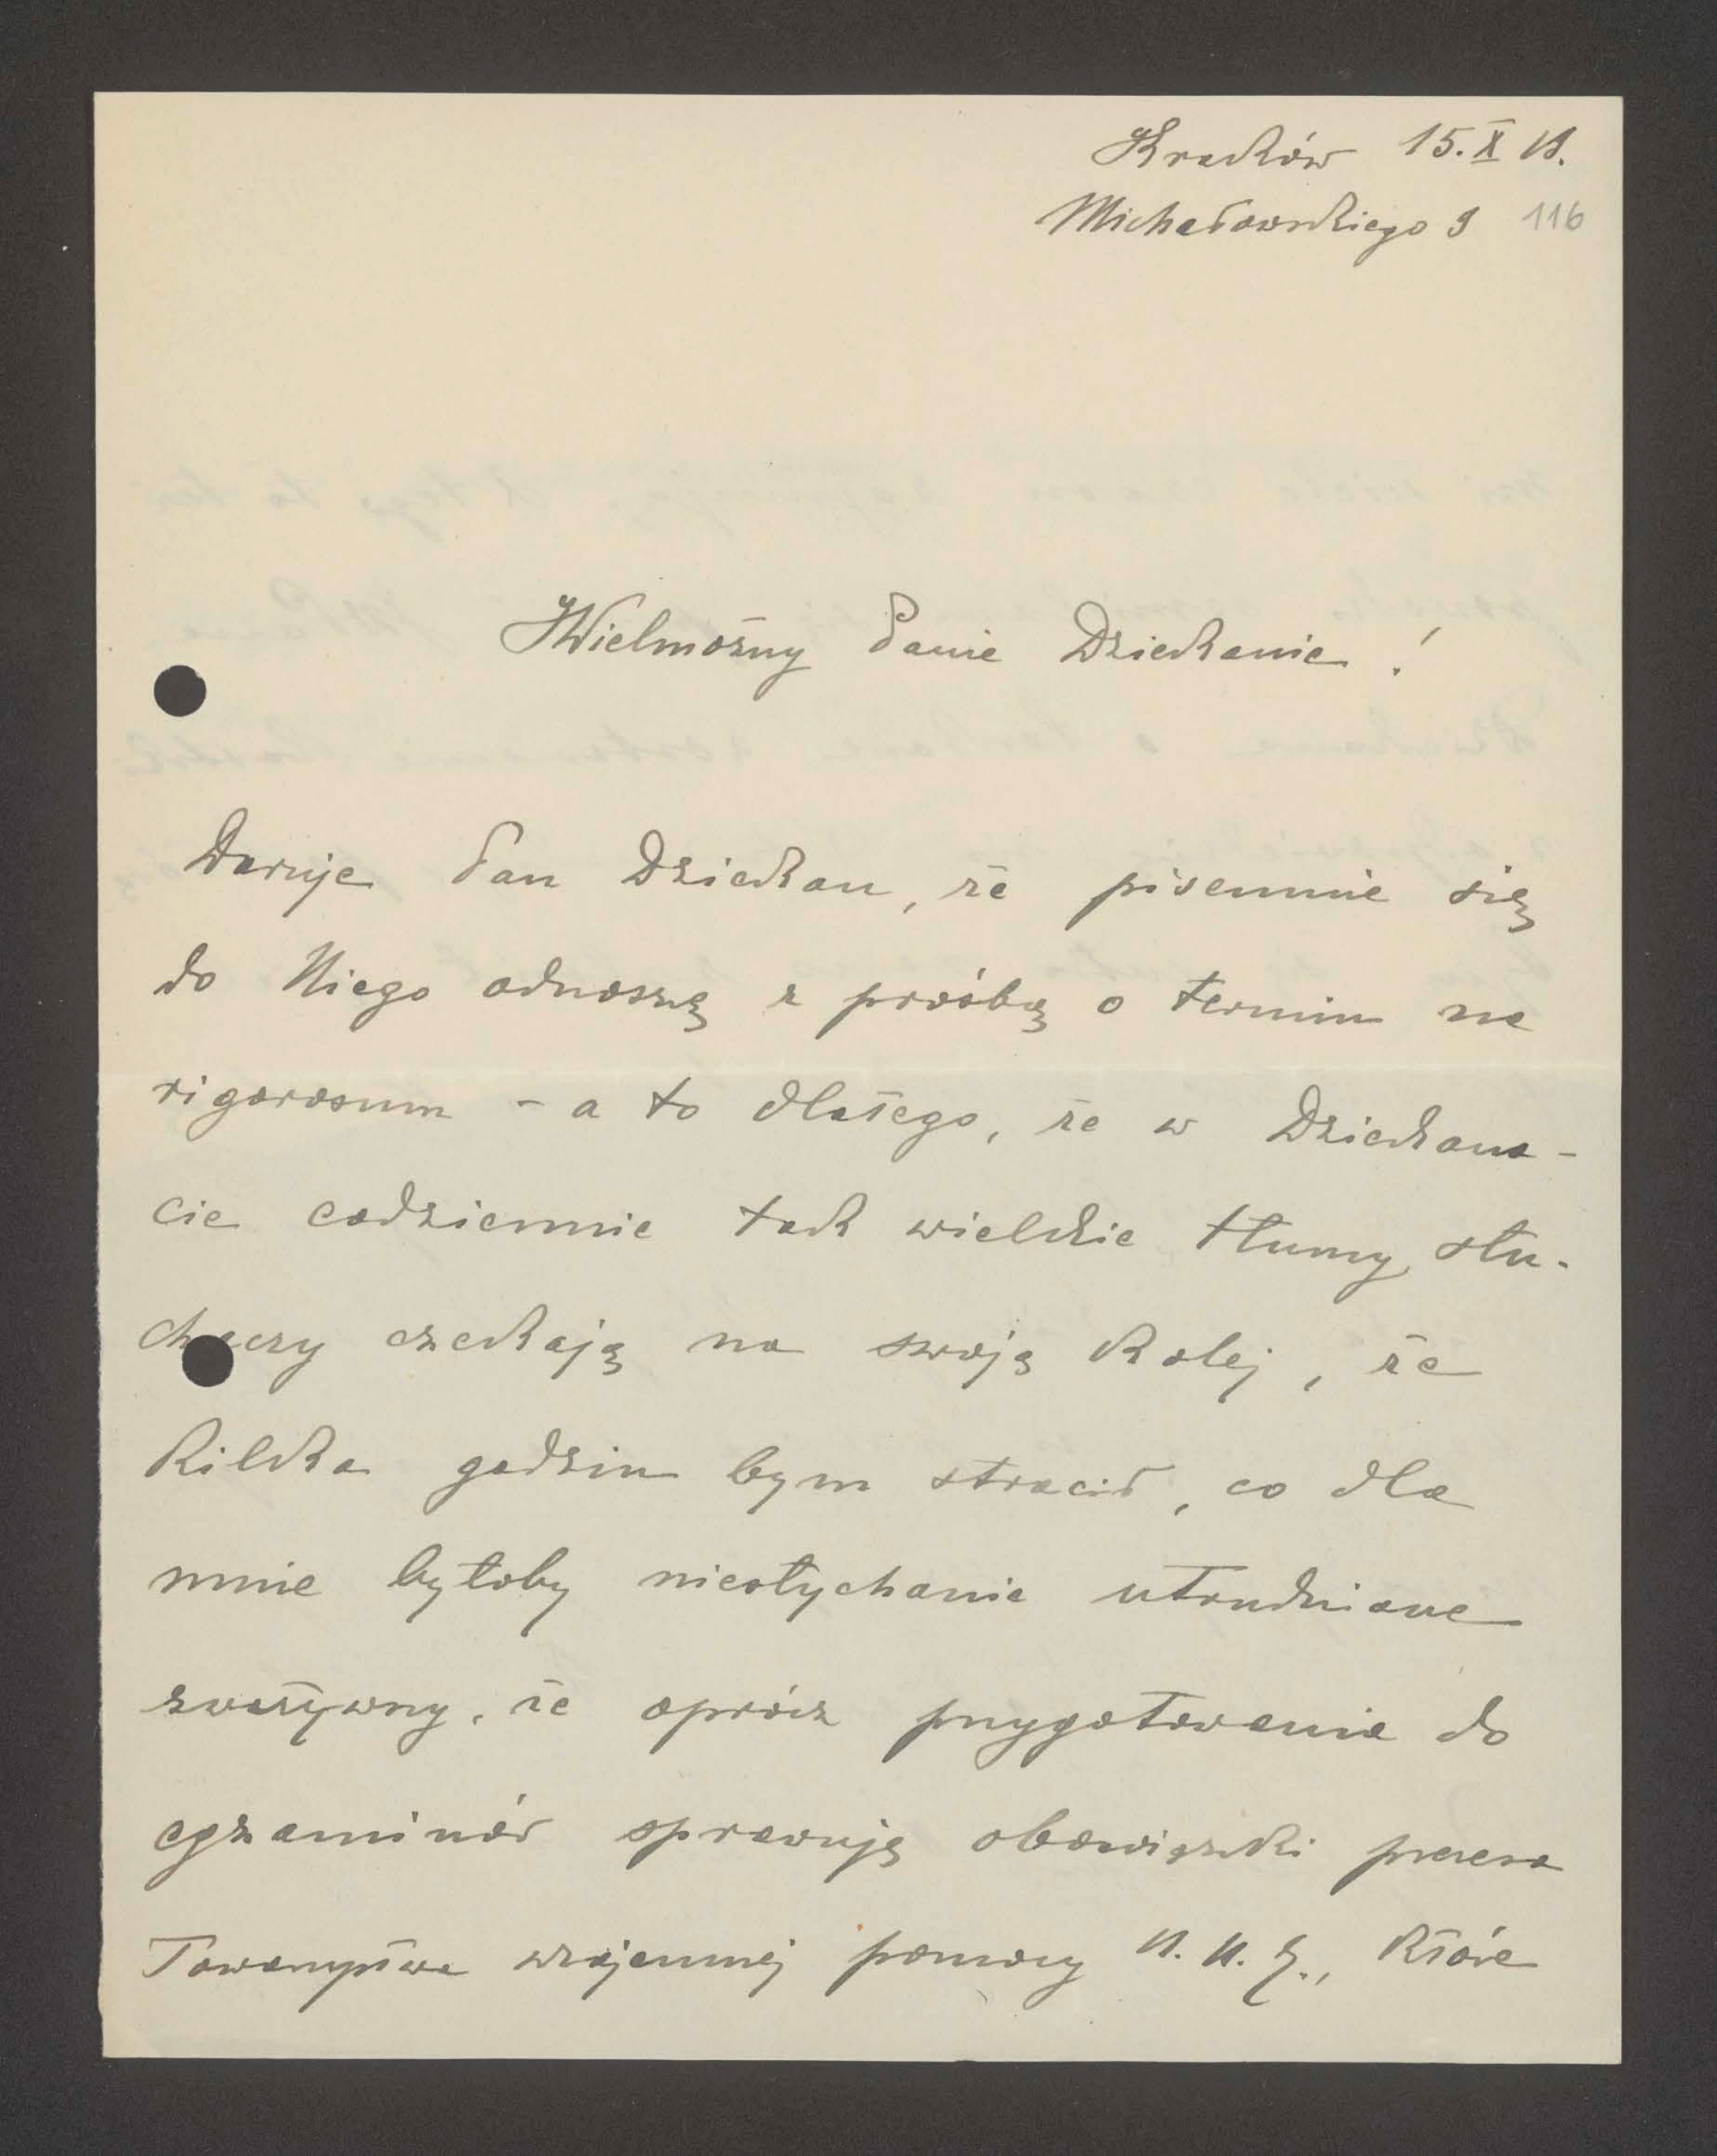 Kraków 15. X 18.
Michałowskiego 9 116
JWielmożny Panie Dziekanie!
Daruje Pan Dziekan, że pisemnie się
do Niego odnoszę z prośbą o termin na
rigorosum - a to dlatego, że w Dziekana-
cie codziennie tak wielkie tłumy słu-
chaczy czekają na swoją kolej, że
kilka godzin bym stracił, co dla
mnie byłoby niesłychanie utrudnione
zważywszy, że oprócz przygotowania do
egzaminów sprawuję obowiązki prezesa
Towarzystwa wzajemnej pomocy U. U. J., które